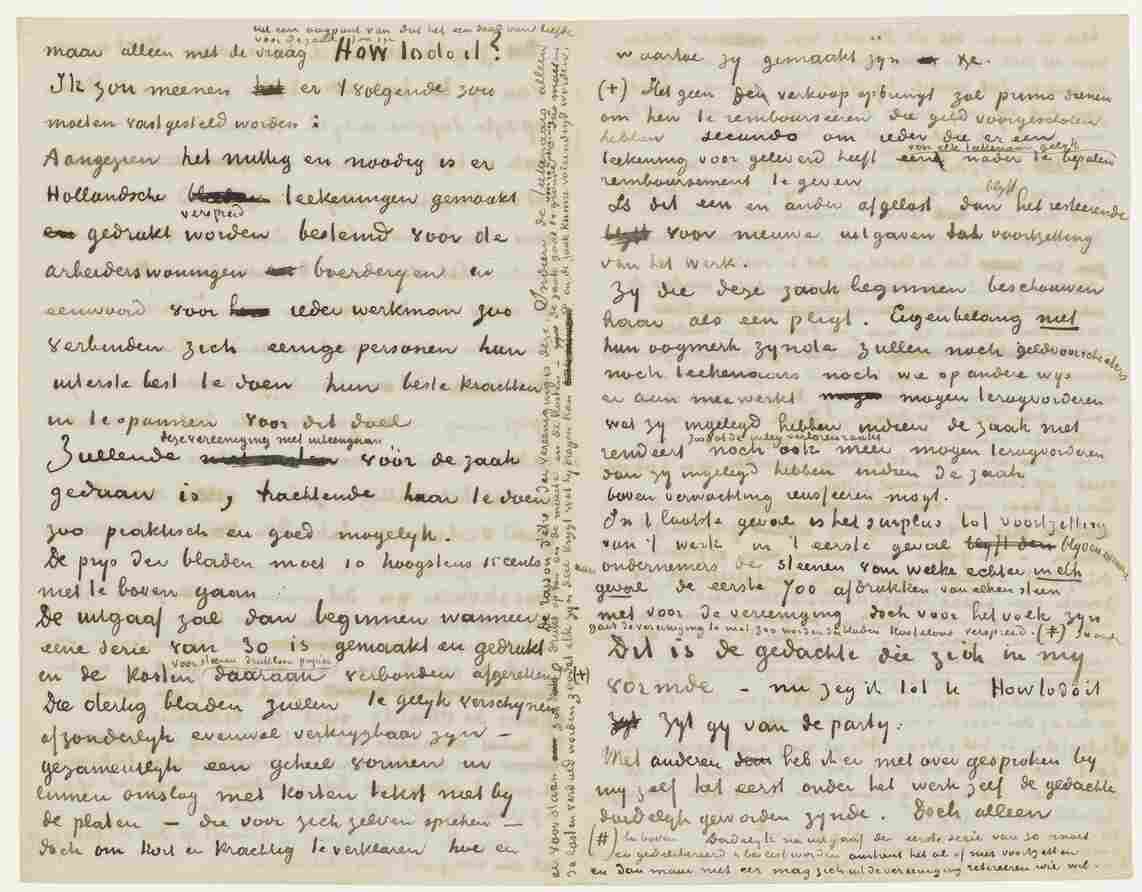 uit een oogpunt van dat het een daad van liefde
voor de zaak zou zyn
maar alleen met de vraag How to do it?
Ik zou meenen het er 't volgende zou
moeten vastgesteld worden:
Aangezien het nuttig en noodig is er
Hollandsche teekeningen gemaakt
verspreid
en gedrukt worden bestemd voor de
arbeiderswoningen en boerderyen in
eenwoord voor hen ieder werkman zoo
verbinden zich eenige personen hun
uiterste best te doen hun beste krachten
in te spannen voor dit doel
deze vereeniging niet uiteengaan
Zullende vóór de zaak
gedaan is, trachtende haar te doen
zoo praktisch en goed mogelyk.
De prys der bladen moet 10 hoogstens 15 cents
niet te boven gaan
De uitgaaf zal dan beginnen wanneer
eene serie van 30 is gemaakt en gedrukt
voor steenen drukloon papier
en de kosten daaraan verbonden afgerekend
Die dertig bladen zullen te gelyk verschynen
afzonderlyk evenwel verkrygbaar zyn –
gezamentlyk een geheel vormen in
linnen omslag met korten tekst niet by
de platen – die voor zich zelven spreken –
doch om kort en krachtig te verklaren hoe en
Indien de teekenaars alleen
de raison d'être der vereeniging is deze
er voor staan
waartoe zy gemaakt zyn
(+) Hetgeen den verkoop opbrengt zal primo dienen
om hen te rembourseeren die geld voorgeschoten
hebben secundo om ieder die er een
van elke teekenaar gelyk
teekening voor geleverd heeft een nader te bepalen
remboursement te geven
blyft
Is dit een en ander afgelost dan het resteerende
blyft voor nieuwe uitgaven tot voortzetting
van het werk.
Zy die deze zaak beginnen beschouwen
haar als een pligt. Eigenbelang niet
hun oogmerk zynde zullen noch geldvoorschieters
noch teekenaars noch wie op andere wys
er aan meewerkt mogen mogen terugvorderen
wat zy ingelegd hebben indien de zaak niet
zoodat de inleg verloren raakt
rendeert noch ook meer mogen terugvorderen
dan zy ingelegd hebben indien de zaak
boven verwachting reusseeren mogt.
In 't laatste geval is het surplus tot voortzetting
van 't werk in 't eerste geval blyft den blyven
aan ondernemers de steenen van welke echter in elk
geval de eerste 700 afdrukken van elken steen
niet voor de vereeniging doch voor het volk zyn
gaat de vereeniging te niet zoo worden de bladen kosteloos verspreid. (#)
Dit is de gedachte die zich in my
vormde – nu zeg ik tot u How to do it
zyt zyt gy van de party.
Met anderen heb ik er niet over gesproken by
my zelf het eerst onder het werk zelf de gedachte
duidelyk geworden zynde. Doch alleen
(#) te boven Dadelyk na uitgaaf der eerste serie van 30 moet
en gedelibereerd & beslist worden omtrent het al of niet voortzetten
en dan maar niet eer mag zich uit de vereeniging retireeren wie wil.